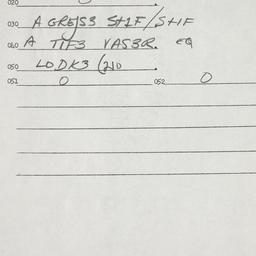 020
030 A GREJS3 St1F/StIF
060 A TIF3 VAS3R. EQ
050 LODK3 (210
051 O 052 O